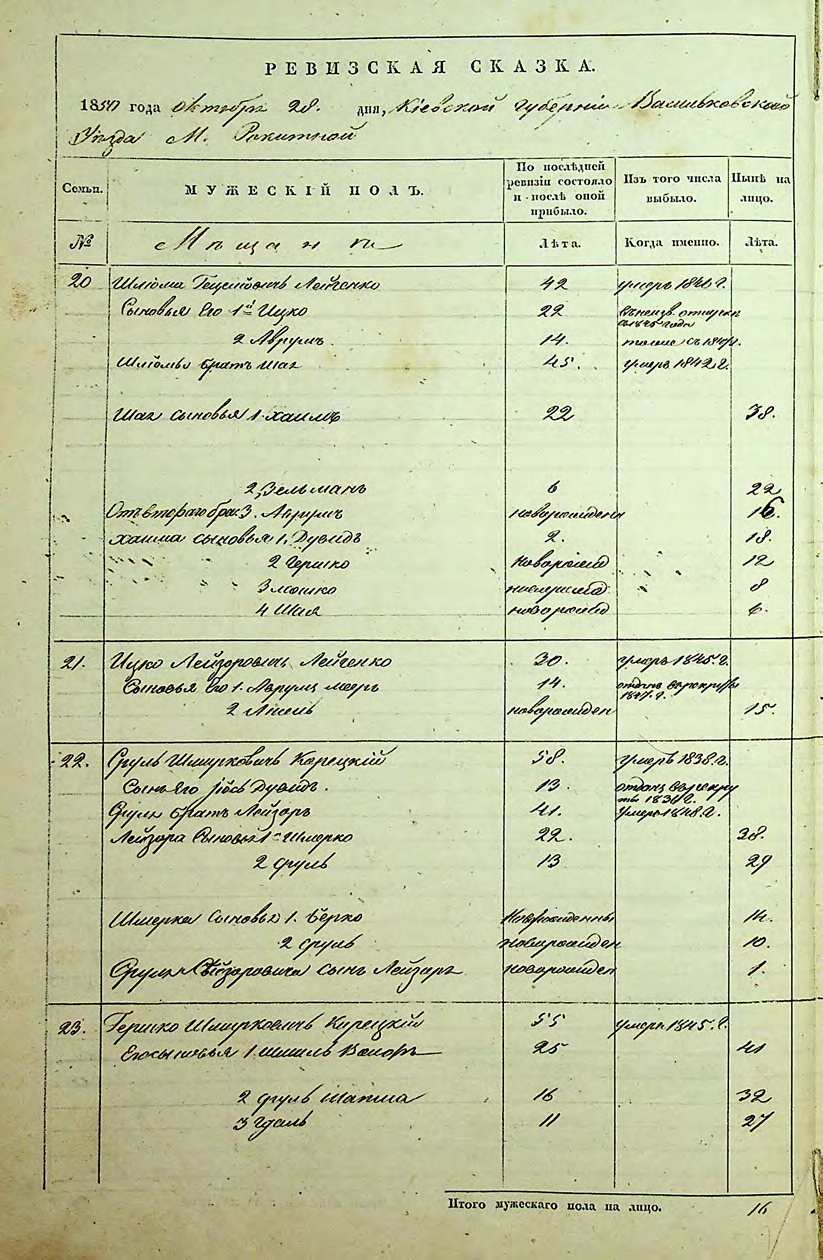 РЕВИЗСКАЯ СКАЗКА.
1850 года Октября 28. дня, Кіевской Губерніи Васильковскаго
Уѣзда М. Рокитной
Семьи. МУЖЕСКІЙ ПОЛЪ. По послѣдней ревизіи состояло и послѣ оной прибыло. Изъ того числа выбыло. Нынѣ на лицо.
№ Мѣщане Лѣта. Когда именно. Лѣта.
20 Шліома Лейченко 42 умеръ 1840 г.
Сыновья Его 1й Ицко 22 въ неизв. отлучкѣ съ 1845 года
2 Аврумъ 14. тоже съ
Шліомы братъ Шая 45. умеръ 1842 г.
Шаи сыновья 1. Хаимъ 22 38.
2 Зельманъ 6 22
Отъ втораго бра: 3. Аврумъ новорожденъ 16.
Хаима сыновья 1. Дувидъ 2. 18.
2 Гершко новорожд 12
3 Мошко новорожд 8
4 Шая новорожд 6.
21. Ицко Лейзоровичъ Лейченко 30. умеръ 1845 г.
Сыновья Его 1. Аврумъ Мееръ 14. отданъ въ рекруты 1847. г.
2 Ансель новорожден 15.
22. Сруль Шмурковичъ Карецкій 58. умеръ 1838. г.
Сынъ Его Іось Дувидъ. 13 отданъ въ рекруты г.
Сруля братъ Лейзоръ 41. умеръ 1848. г.
Лейзора Сыновья 1й Шмерко 22. 38.
2 Сруль 13 29
Шмерка Сыновья 1. Берко Новорожденны 14.
2 Сруль новорожден 10.
Сруля Лейзоровича сынъ Лейзоръ новорожден 1.
23. Гершко Шмурковичъ Карецкій 55 умеръ 1845. г.
Его сыновья 1. Шмиль 25 41
2 Сруль Шапша 16 32
3 Гдаль 11 27
Итого мужескаго пола на лицо. 16